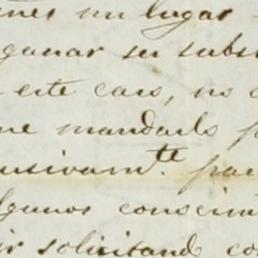 un lugar
ganar su subs
este caso, no
me mandarlo p
usivam.te par
lgunos conocim
ir solicitando co